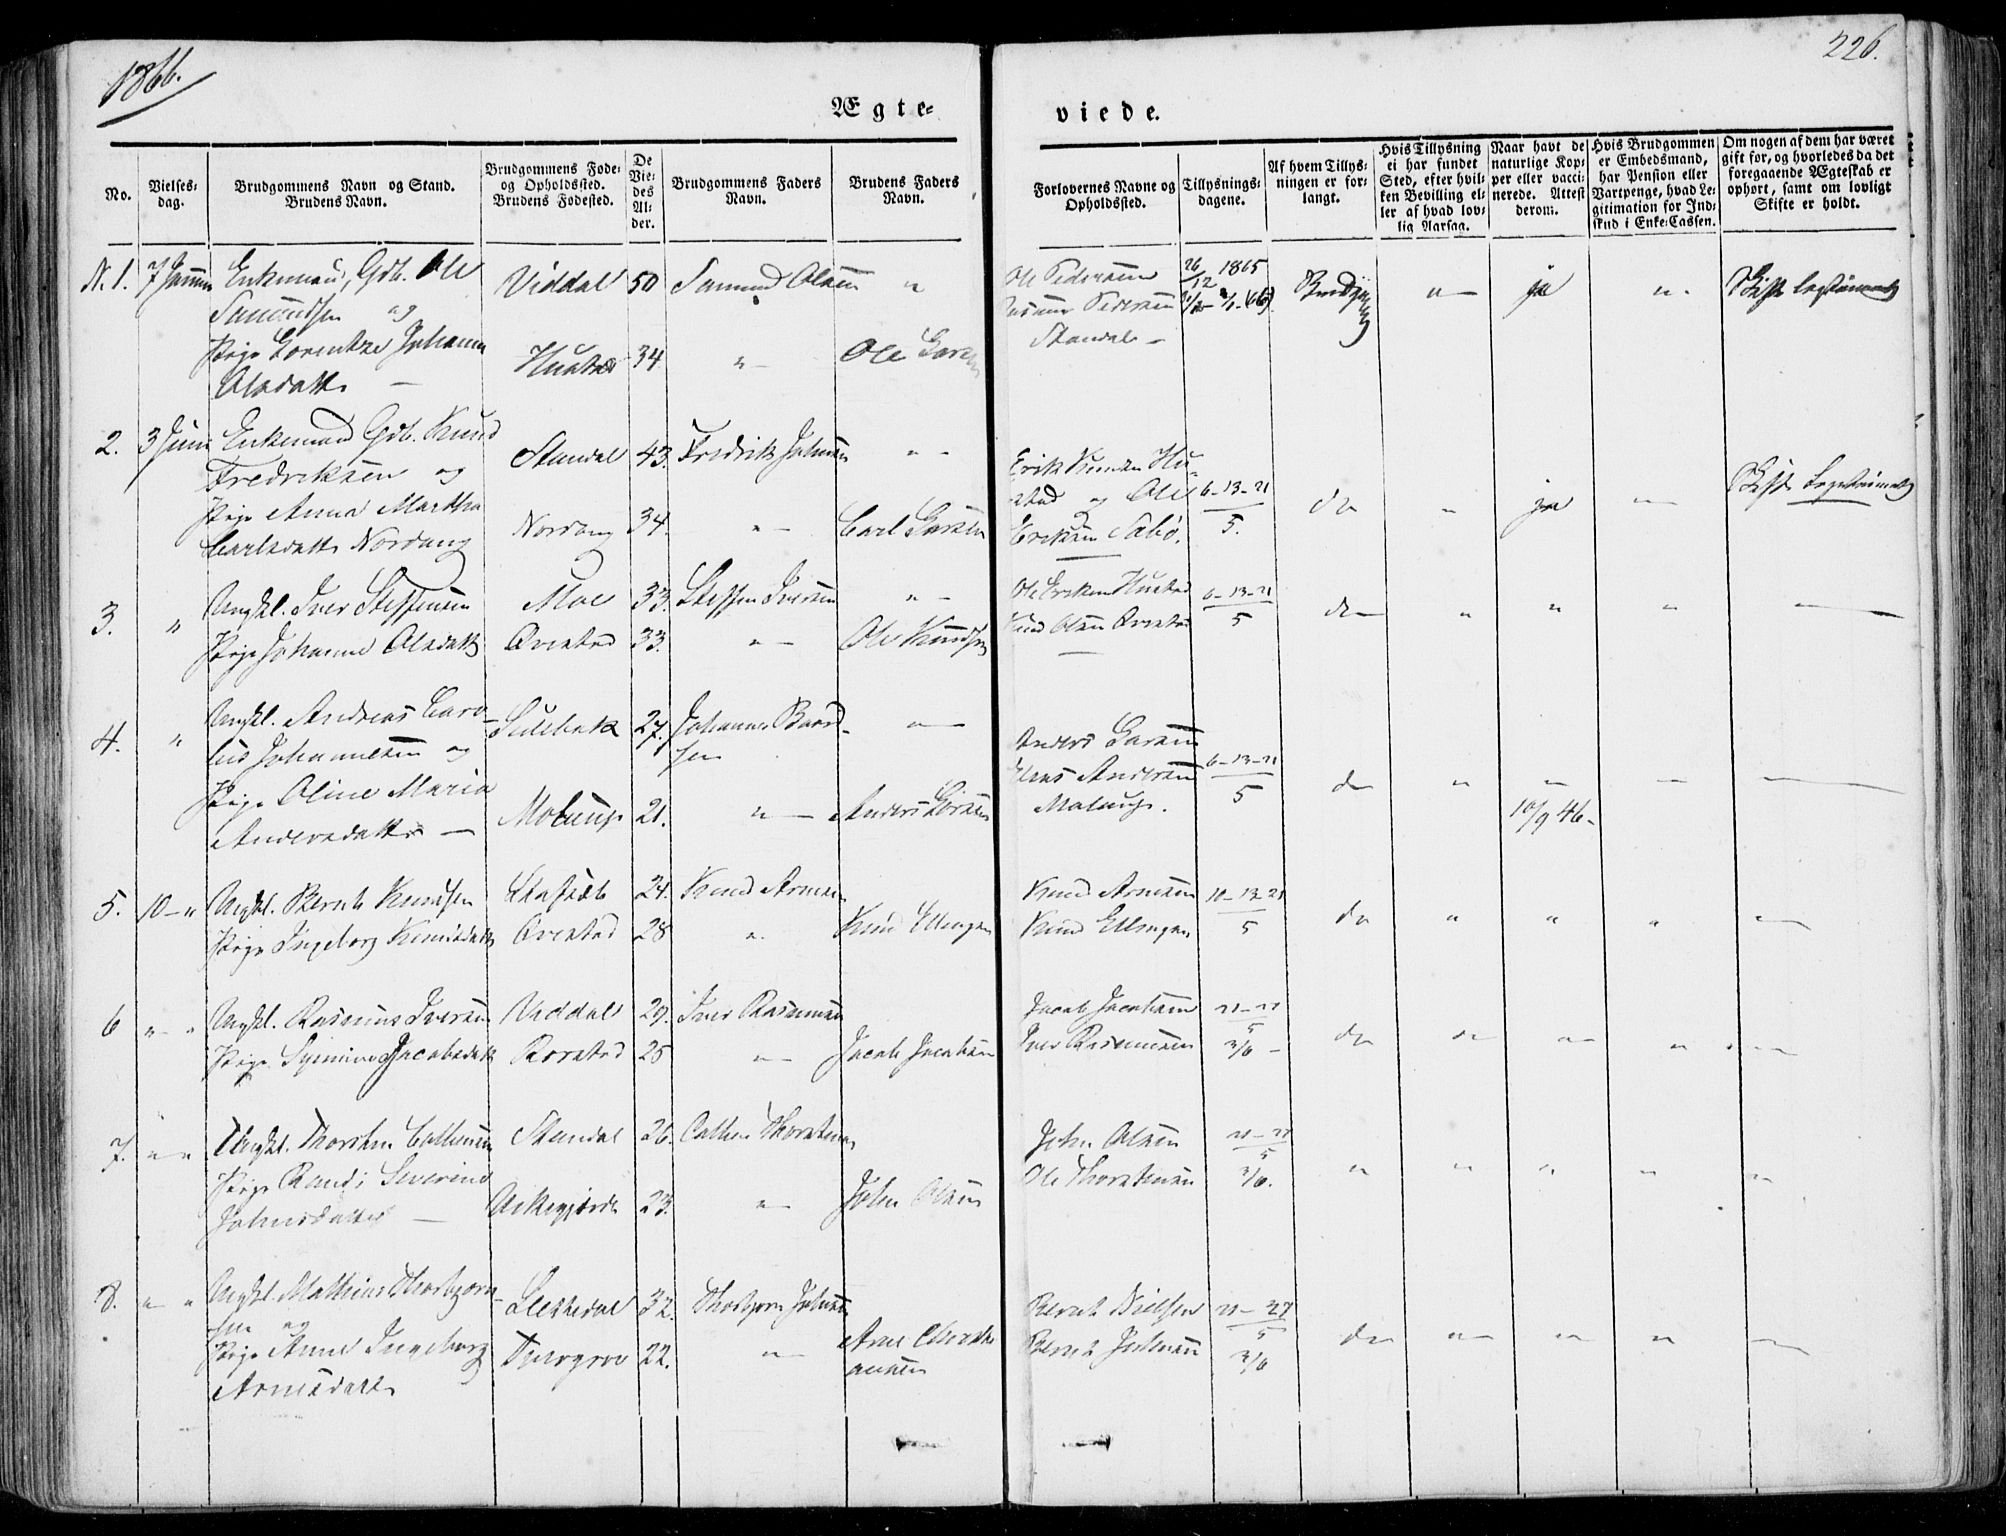 1866.
226.
Ægte-
viede.
No.
Vielses-
dag.
Brudgommens Navn og Stand.
Brudens Navn.
Brudgommens Føde-
og Opholdssted.
Brudens Fødested.
De
Vie-
des
Al-
der.
Brudgommens Faders
Navn.
Brudens Faders
Navn.
Forlovernes Navne og
Opholdssted.
Tillysnings-
dagene.
Af hvem Tillys-
ningen er for-
langt.
Hvis Tillysning
ei har fundet
Sted, efter hvil-
ken Bevilling el-
ler af hvad lov-
lig Aarsag.
Naar havt de
naturlige Kop-
per eller vacci-
nerede. Attest
derom.
Hvis Brudgommen
er Embedsmand,
har Pension eller
Vartpenge, hvad Le-
gitimation for Ind-
skud i Enke-Cassen.
Om nogen af dem har været
gift før, og hvorledes da det
foregaaende Ægteskab er
ophørt, samt om lovligt
Skifte er holdt.
N. 1. 7 Januar Enkemand, Gdb. Ole Viddal 50 Samund Olsen "
Samundsen og
Pige Lorentze Johanna Hustad 34 " Ole Larsen
Olsdatter
Ole Pedersen 26/12 1865 ja Skifte legitimeret
Rasmus Pedersen
Standal
2. 3 Juni Enkemand Gdb. Knud Standal 43. Fredrik Johnsen "
Fredriksen og
Pige Anna Martha Nordang 34. " Carl Larsen
Carlsdatter Nordang
Erik Knudsen Hu-
stad og Ole 6-13-21 do " ja Skifte Legitimeret
Eriksen Sæbø. 5.
3. " Ungkl. Iver Steffensen Moe 33. Steffen Iversen "
Pige Johanne Olsdatter Øvrestad 33. " Ole Knudsen
Ole Eriksen Hustad 6-13-21 do " " "
Knud Olsen Øvrestad 5
4. " Ungkl. Andreas Caro- Sulebak 27. Johannes Baard- "
lus Johannesen og sen
Pige Oline Maria Molaup 21. " Anders Larsen
Andersdatter
Anders Larsen
Elias Andersen 6-13-21 do " "
Molaup. 5 10/9 46
5. 10 " Ungkl. Bernt Knudsen 24. Knud Arnesen
Pige Ingeborg Knudsdatter Øvrestad 28 " Knud Ellingsen
Knud Arnesen 10-13-21 do " " "
Knud Ellingsen 5
6 " " Ungkl. Rasmus Iversen Viddal 29. Iver Rasmussen
Pige Jacobsdatter Rorstad 25 " Jacob Jacobsen
Jacob Jacobsen 21-27
Iver Rasmussen 5 do do
3/6
7. " " Ungkl. Thorsten Cathensen Standal 26. Cathen Thorstensen
Pige Randi Severine 23. " John Olsen
Johnsdatter
John Olsen 21-27
Ole Thorstensen 5 " " " " "
3/6.
8. " " Ungkl. Mathias Thorbjørn- Lekkedal 32. Thorbjørn Johnsen
sen og
Pige Anne Ingeborg 22. " Arne Christi-
Arnesdatter ansen
Bernt Nielsen 21-27
Bernt Johnsen 5 do " " "
3/6